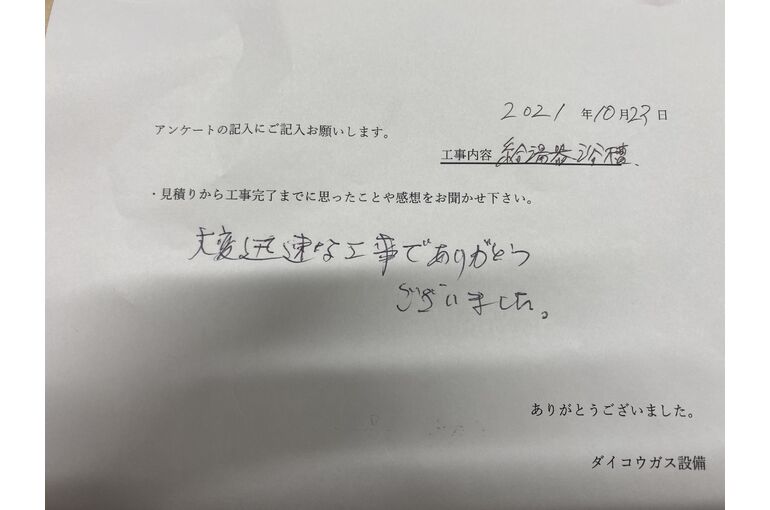 2021 年 10月23日
アンケートの記入にご記入お願いします。
工事内容 給湯器浴槽、
・見積りから工事完了までに思ったことや感想をお聞かせ下さい。
大変迅速な工事でありがとう
ございました。
ありがとうございました。
ダイコウガス設備